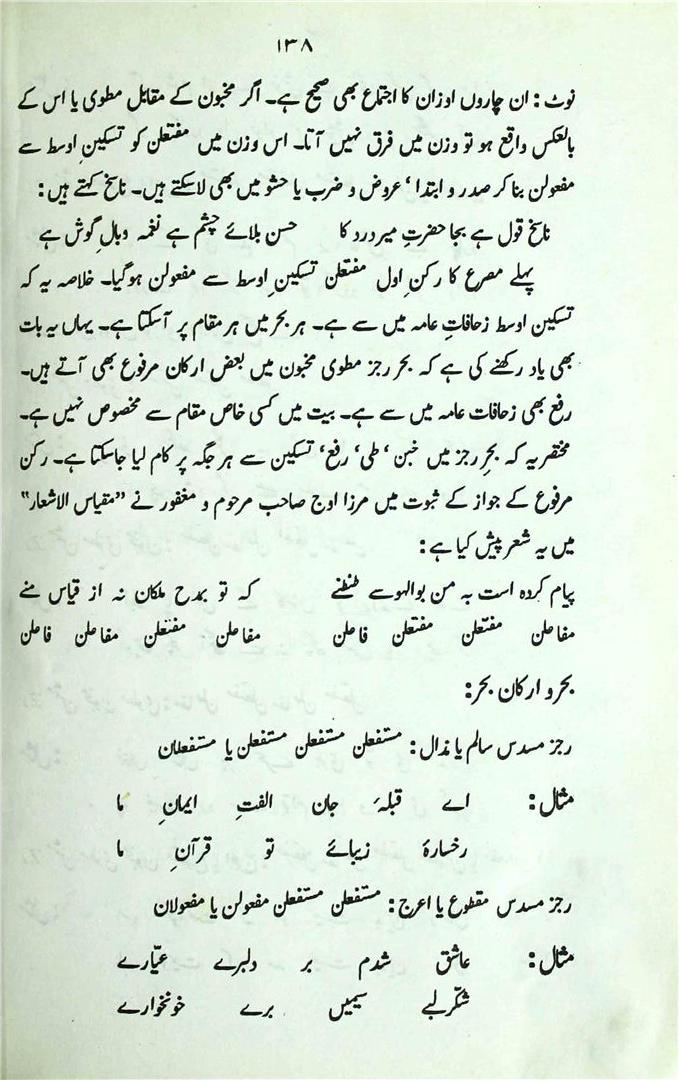 ۱۳۸
نوٹ: ان چاروں اوزان کا اجتماع بھی صحیح ہے۔ اگر مخبون کے مقابل مطوی یا اس کے
بالعکس واقع ہو تو وزن میں فرق نہیں آتا۔ اس وزن میں مفتعلن کو تسکینِ اوسط سے
مفعولن بنا کر صدر و ابتدا، عروض و ضرب یا حشو میں بھی لا سکتے ہیں۔ ناسخ کہتے ہیں:
ناسخ قول ہے بجا حضرتِ میر درد کا    حسن بلائے چشم ہے نغمہ وبالِ گوش ہے
پہلے مصرع کا رکنِ اول مفتعلن تسکینِ اوسط سے مفعولن ہو گیا۔ خلاصہ یہ کہ
تسکین اوسط زحافاتِ عامہ میں سے ہے۔ ہر بحر میں ہر مقام پر آسکتا ہے۔ یہاں یہ بات
بھی یاد رکھنے کی ہے کہ بحر رجز مطوی مخبون میں بعض ارکان مرفوع بھی آتے ہیں۔
رفع بھی زحافات عامہ میں سے ہے۔ بیت میں کسی خاص مقام سے مخصوص نہیں ہے۔
مختصر یہ کہ بحرِ رجز میں خبن، طی، رفع، تسکین سے ہر جگہ پر کام لیا جاسکتا ہے۔ رکن
مرفوع کے جواز کے ثبوت میں مرزا اوج صاحب مرحوم و مغفور نے ”مقیاس الاشعار“
میں یہ شعر پیش کیا ہے:
پیام کردہ است بہ من بوالہوسے طنطنے    کہ تو بمدح ملکان نہ از قیاس منے
مفاعلن مفتعلن مفتعلن فاعلن    مفاعلن مفتعلن مفاعلن فاعلن
بحر و ارکان بحر:
رجز مسدس سالم یا مذال: مستفعلن مستفعلن مستفعلن یا مستفعلان
مثال: اے قبلۂ جان الفتِ ایمانِ ما
رخسارۂ زیبائے تو قرآنِ ما
رجز مسدس مقطوع یا اعرج: مستفعلن مستفعلن مفعولن یا مفعولان
مثال: عاشق شدم بر دلبرے عیّارے
شکّر لبے سیمیں برے خونخوارے